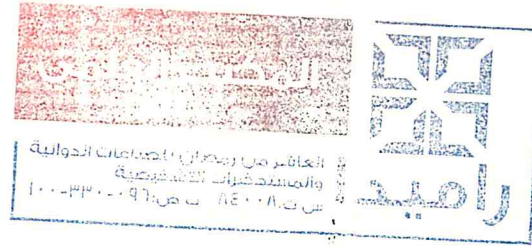 المكتب العلمي
راميد
العاشر من رمضان للصناعات الدوائية
والمستحضرات التشخيصية
س.ت: ٨٤٠٠٨ ب.ض: ٠٩٦-٣٣٠-١٠٠